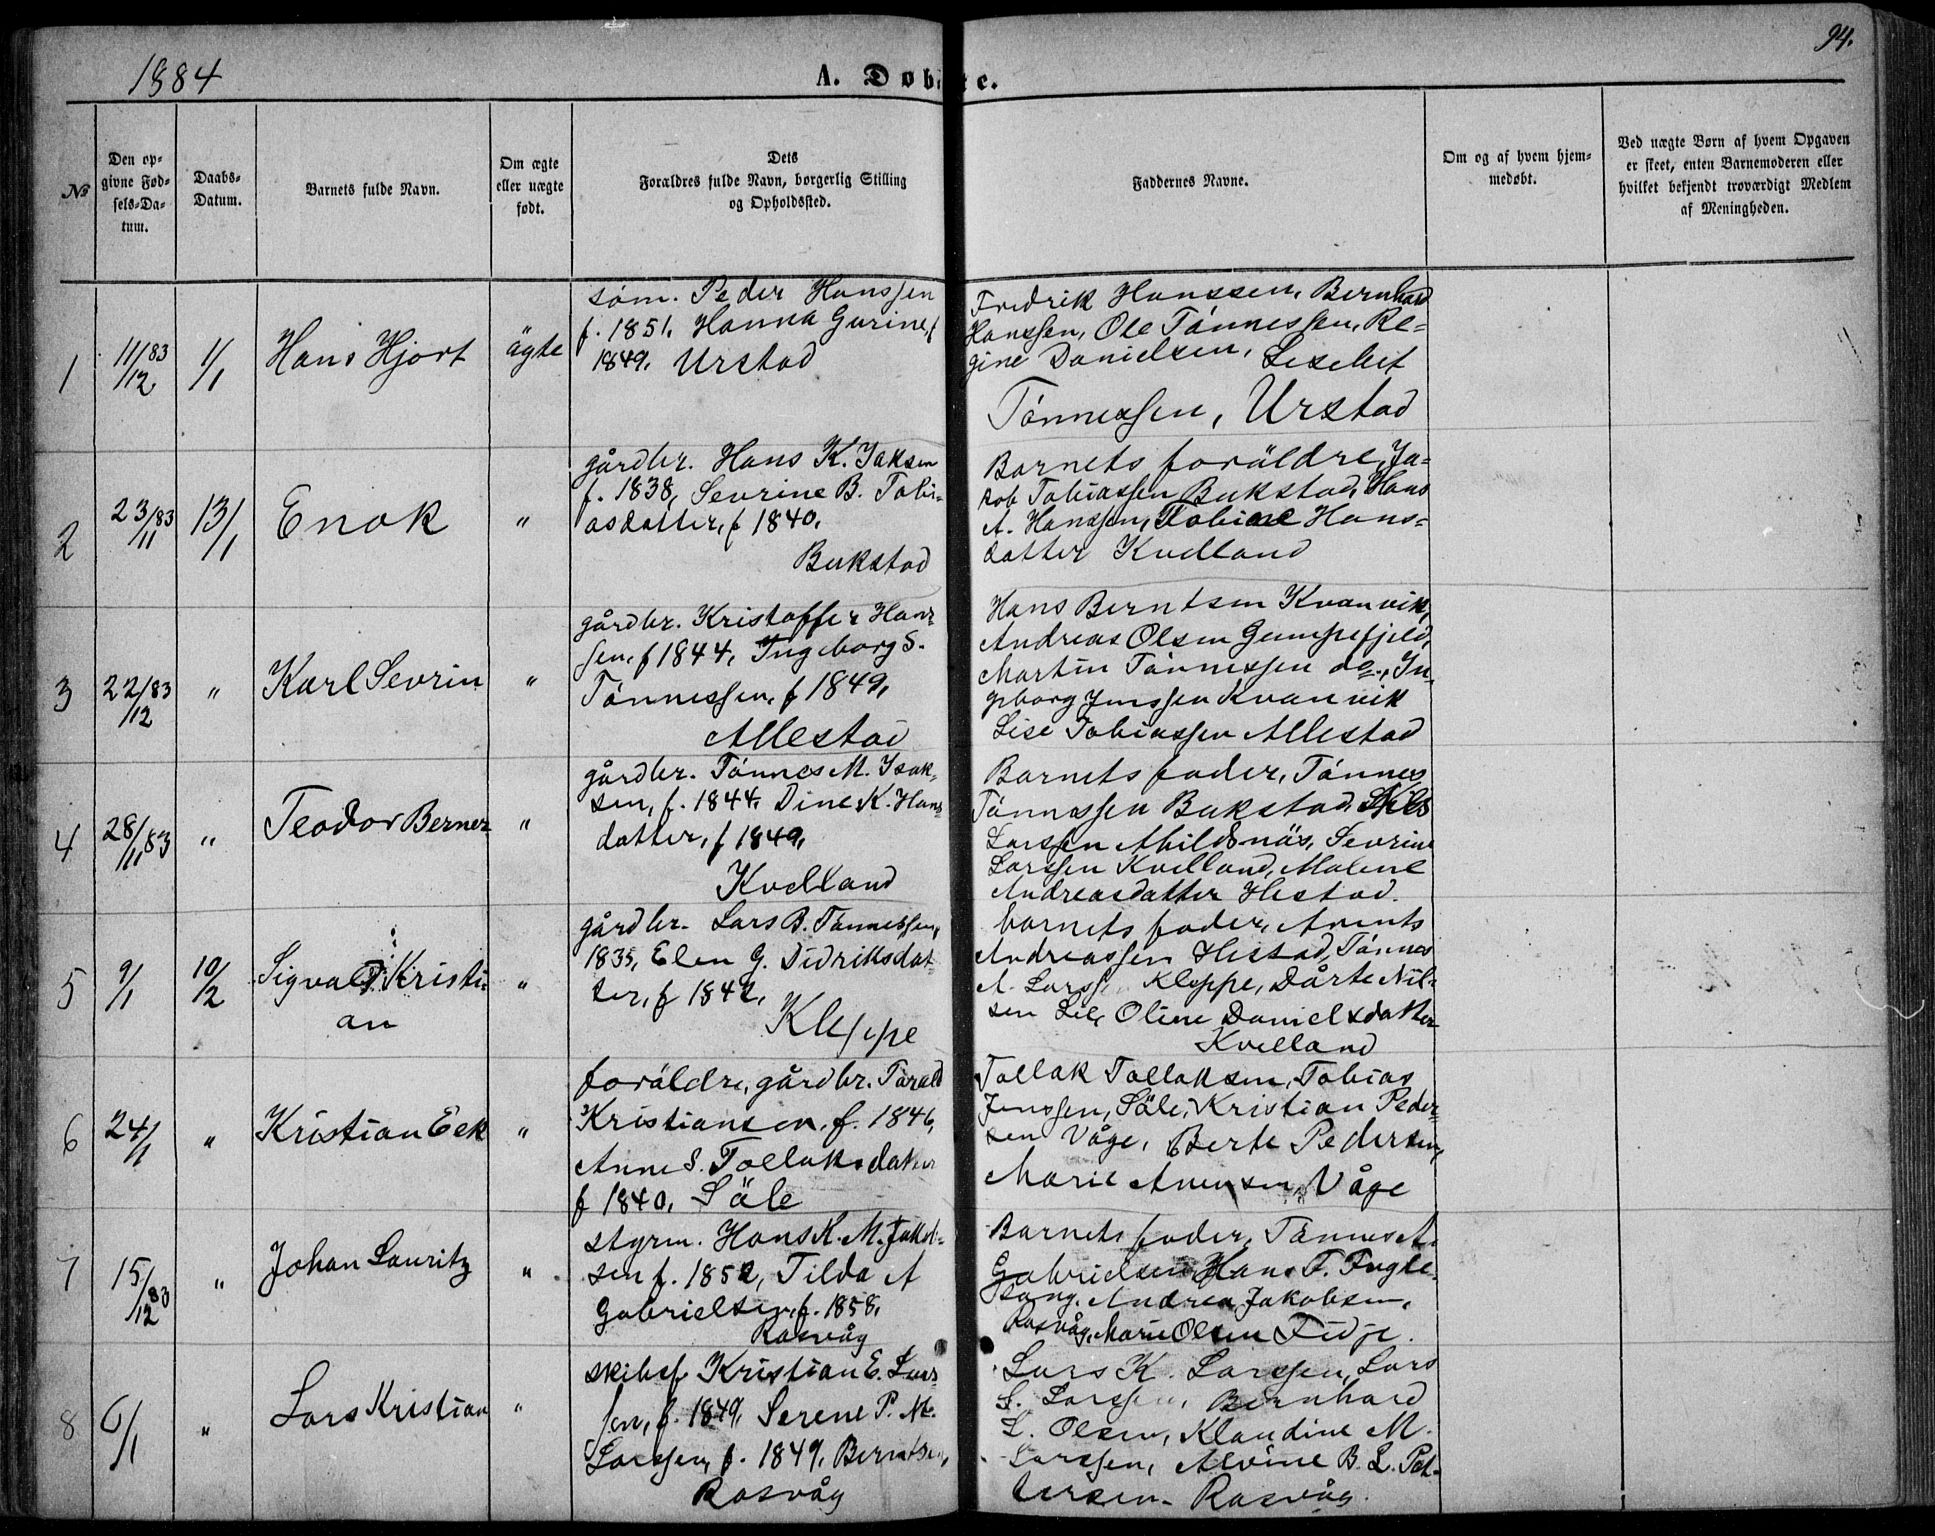 1884
A. Døb
e.
94.
No
Den op-
givne Fød-
sels-Da-
tum.
Daabs-
Datum.
Barnets fulde Navn.
Om ægte
eller uægte
født.
Dets
Forældres fulde Navn, borgerlig Stilling
og Opholdssted.
Faddernes Navne.
Om og af hvem hjem-
medøbt.
Ved uægte Børn af hvem Opgaven
er skeet, enten Barnemoderen eller
hvilket bekjendt troværdigt Medlem
af Meningheden.
1
11/12 83
1/1
Hans Hjort
ägte
søm. Peder Hanssen
f. 1851, Hanna Gurine, f
1849, Urstad
Fredrik Hanssen, Bernhard
Hanssen, Ole Tönnessen, Re-
gine Danielsen, Liselit
Tönnessen, Urstad
2
23/11 83
13/1
Enok
"
gårdbr. Hans K. Isaksen
f. 1838, Sevrine B. Tobi-
asdatter, f 1840,
Bukstad
Barnets foräldre, Ja-
kob Tobiassen Bukstad, Hans
A. Hanssen, Tobine Hans-
datter Kvelland
3
22/12 83
"
Karl Sevrin
"
gårdbr. Kristoffer Hans-
sen, f 1844, Ingeborg S.
Tönnessen, f 1849,
Allestad
Hans Berntsen Kvanvik,
Andreas Olsen Gumpefjeld,
Martin Tönnessen do., In-
geborg Jenssen Kvanvik
Lise Tobiassen Allestad
4
28/11 83
"
Teodor Berner
"
gårdbr. Tönnes M. Isak-
sen, f. 1844, Dine K. Hans
datter, f 1849,
Kvelland
Barnets fader, Tönnes
Tönnessen Bukstad, Nils
Larssen Abildsnäs, Sevrine
Larssen Kvelland, Malene
Andreasdatter Hestad.
5
9/1
10/2
Sigvald Kristi-
an
"
gårdbr. Lars B. Tönnessen,
1835, Elen G. Didriksdat-
ter, f 1842,
Kleppe
barnets fader, Arents
Andreassen Hestad, Tönnes
A. Larssen Kleppe, Dårte Nil-
sen Lil, Oline Danielsdatter
Kvelland
6
24/1
"
Kristian Eek
"
foräldre, gårdbr. Tarald
Kristiansen, f. 1846,
Anne S. Tollaksdatter
f 1840, Säle
Tollak Tollaksen, Tobias
Jenssen, Säle, Kristian Peder-
sen Våge, Berte Pedersen,
Marie Arensen, Våge
7
15/12 83
"
Johan Lauritz
"
styrm. Hans K. M. Jakob-
sen f. 1852, Tilda A
Gabrielsen, f. 1858,
Rasvåg
Barnets fader, Tönnes A.
Gabrielsen, Hans F. Fugle-
sang, Andrea Jakobsen,
Rasvåg, Marie Olsen Fidje.
8
6/1
"
Lars Kristian
"
skibsf Kristian E. Lars-
sen, f. 1849, Serene P. M.
Larssen, f. 1849, Berntsen,
Rasvåg
Lars K. Larssen, Lars
S. Larssen, Bernhard
L. Olsen, Klaudine M.
Larssen, Alvine B. L. Pet-
tersen. Rasvåg.